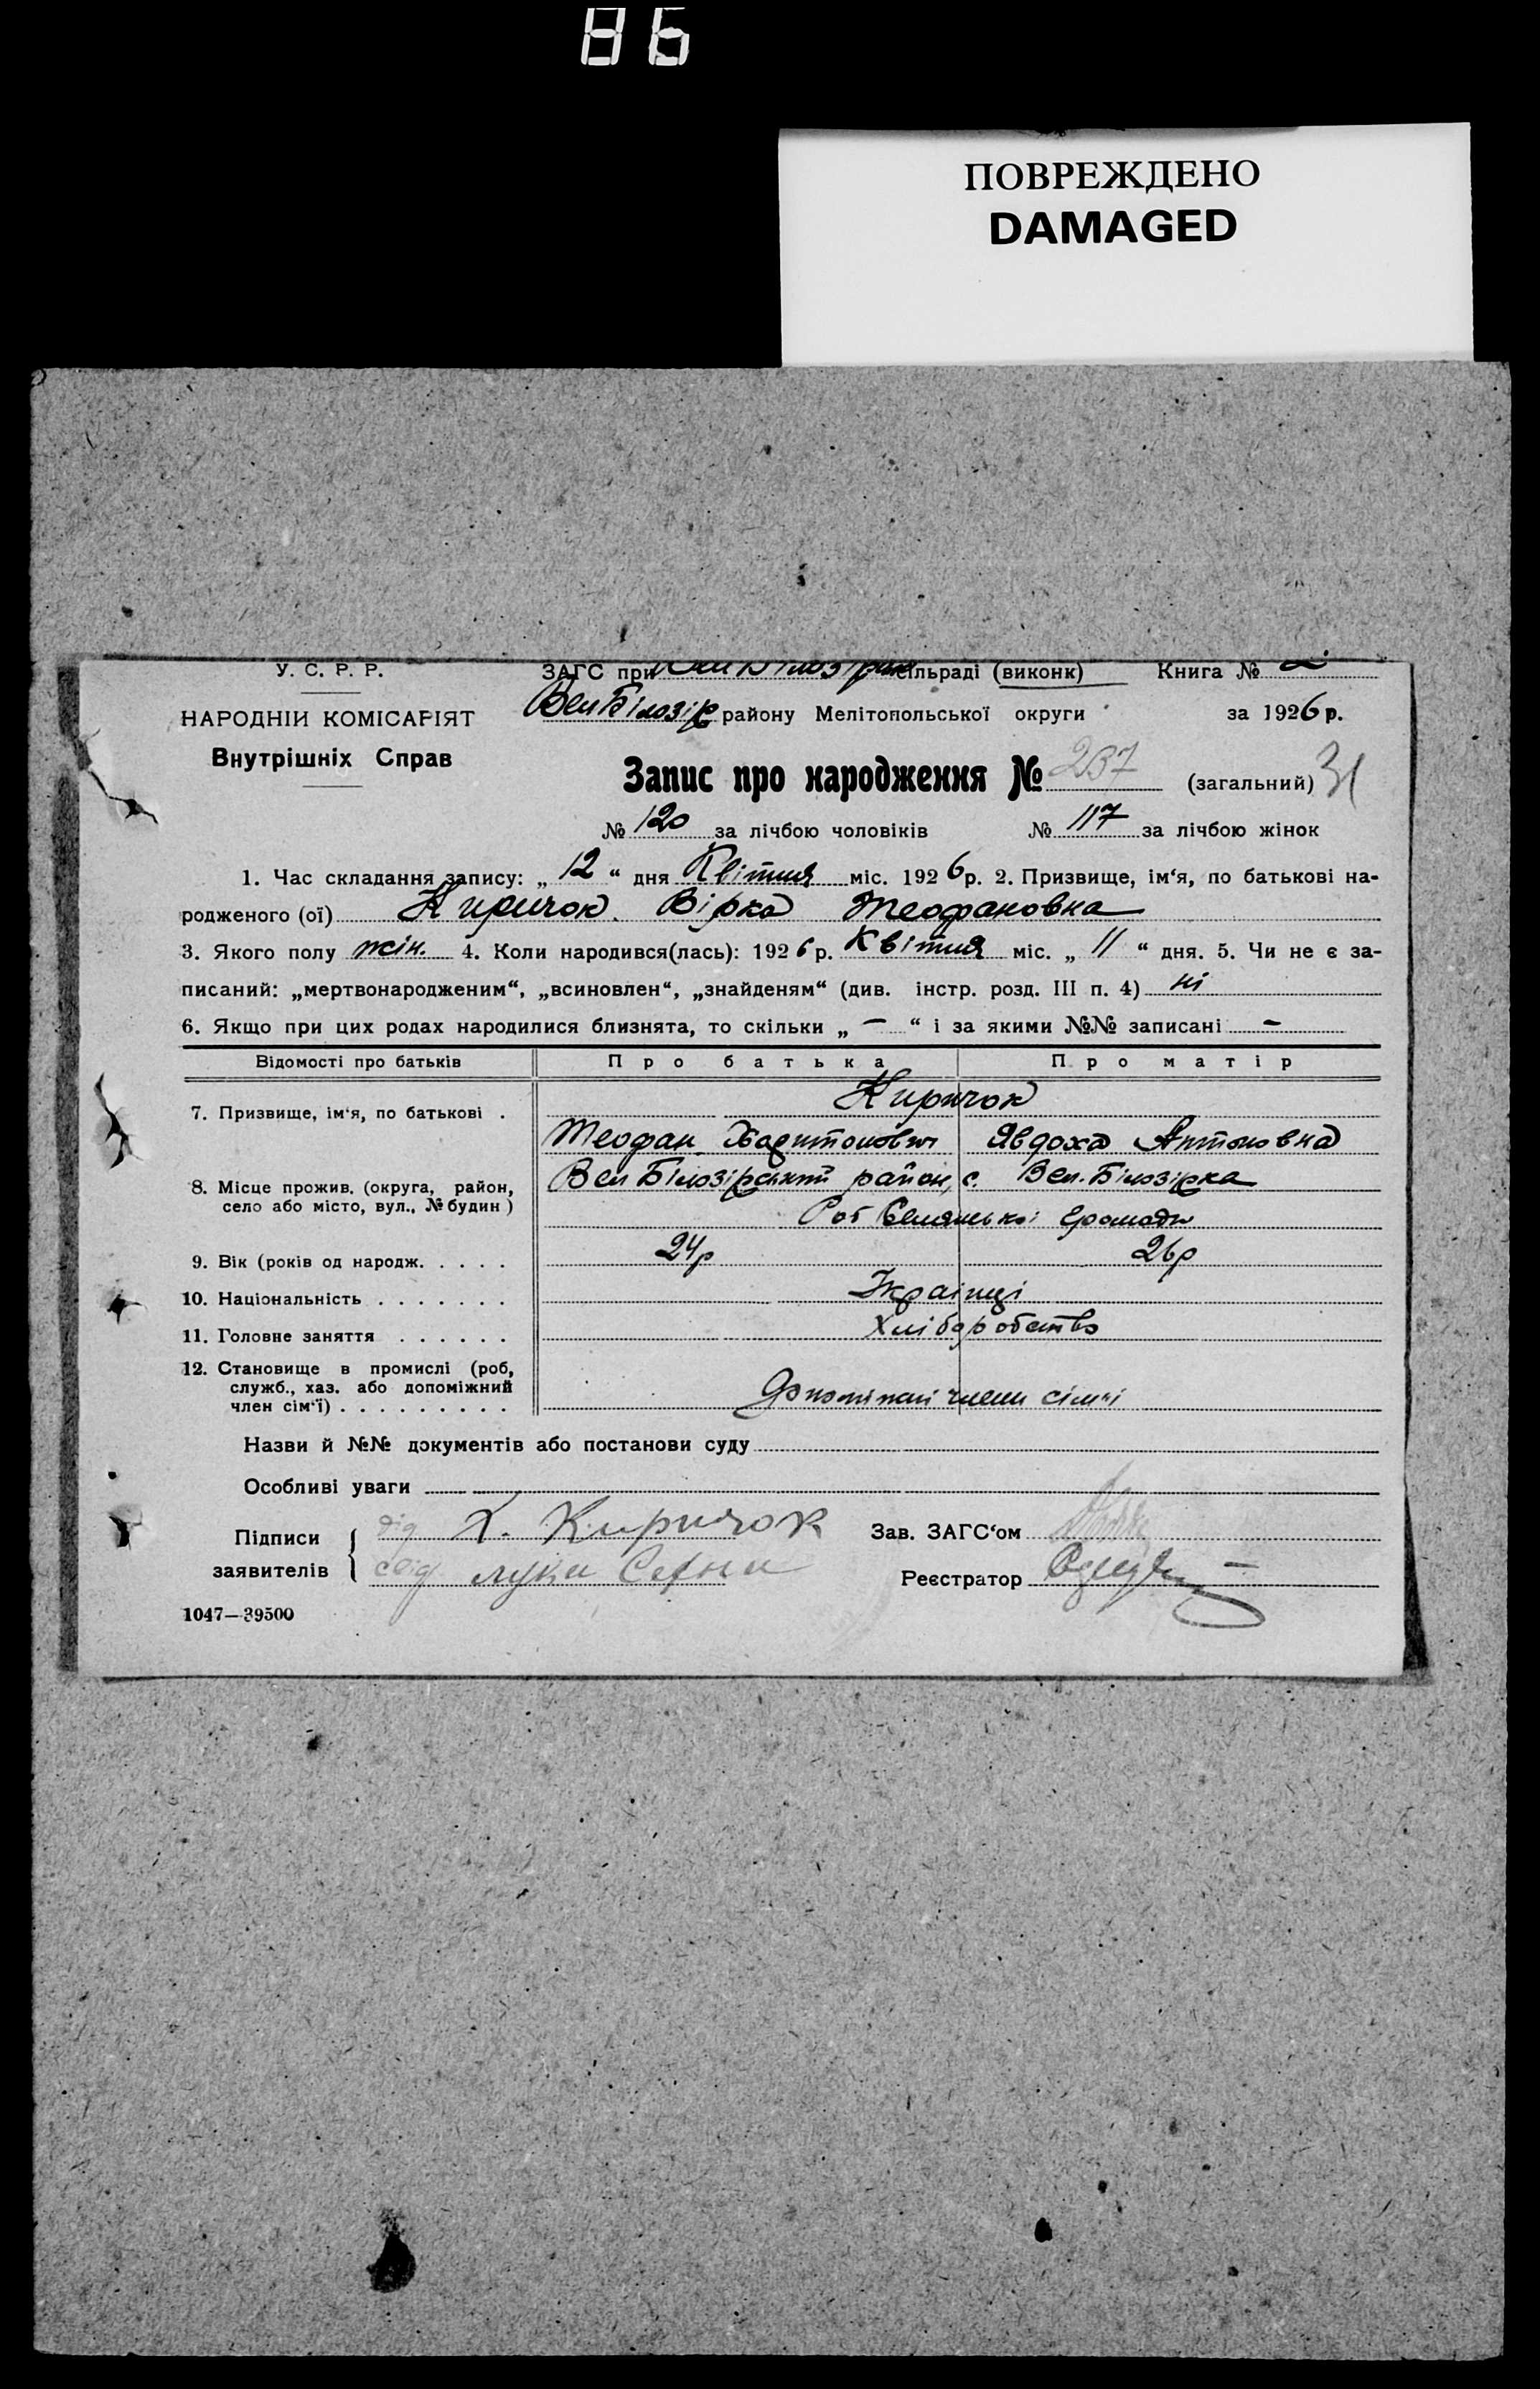 86
ПОВРЕЖДЕНО
DAMAGED
У. С. Р. Р. ЗАГС при Вел Білозірск сільраді (виконк) Книга № 2
НАРОДНІЙ КОМІСАРІЯТ Вел Білозір району Мелітопольської округи за 1926 р.
Внутрішніх Справ
Запис про народження № 237 (загальний) 31
№ 120 за лічбою чоловіків № 117 за лічбою жінок
1. Час складання запису: „ 12 “ дня Квітня міс. 1926 р. 2. Призвище, ім‘я, по батькові на-
родженого (ої) Киричок Вірка Теофановка
3. Якого полу жін. 4. Коли народився(лась): 1926 р. Квітня міс. „ 11 “ дня. 5. Чи не є за-
писаний: „мертвонародженим“, „всиновлен“, „знайденям“ (див. інстр. розд. III п. 4) ні
6. Якщо при цих родах народилися близнята, то скільки „ — “ і за якими №№ записані —
Відомості про батьків Про батька Про матір
7. Призвище, ім‘я, по батькові . Киричок
Теофан Харитонович Явдоха Антоновна
8. Місце прожив. (округа, район, Вел Білозірський район, с. Вел. Білозірка
село або місто, вул., № будин) Роб Селянської громади
9. Вік (років од народж. . . . . 24р 26р
10. Національність . . . . . . . Українці
11. Головне заняття . . . . . . Хліборобство
12. Становище в промислі (роб,
служб., хаз. або допоміжний
член сім‘ї) . . . . . . . . . Допоміжні члени сімьі
Назви й №№ документів або постанови суду
Особливі уваги
Підписи дід Х. Киричок Зав. ЗАГС‘ом
заявителів свід Лука Реєстратор
1047—39500